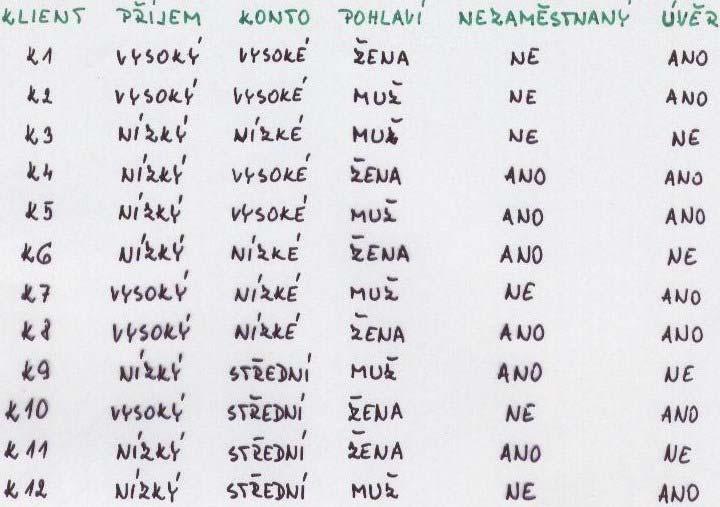 KLIENT PŘÍJEM KONTO POHLAVÍ NEZAMĚSTNANÝ ÚVĚR
K1 VYSOKÝ VYSOKÉ ŽENA NE ANO
K2 VYSOKÝ VYSOKÉ MUŽ NE ANO
K3 NÍZKÝ NÍZKÉ MUŽ NE NE
K4 NÍZKÝ VYSOKÉ ŽENA ANO ANO
K5 NÍZKÝ VYSOKÉ MUŽ ANO ANO
K6 NÍZKÝ NÍZKÉ ŽENA ANO NE
K7 VYSOKÝ NÍZKÉ MUŽ NE ANO
K8 VYSOKÝ NÍZKÉ ŽENA ANO ANO
K9 NÍZKÝ STŘEDNÍ MUŽ ANO NE
K10 VYSOKÝ STŘEDNÍ ŽENA NE ANO
K11 NÍZKÝ STŘEDNÍ ŽENA ANO NE
K12 NÍZKÝ STŘEDNÍ MUŽ NE ANO